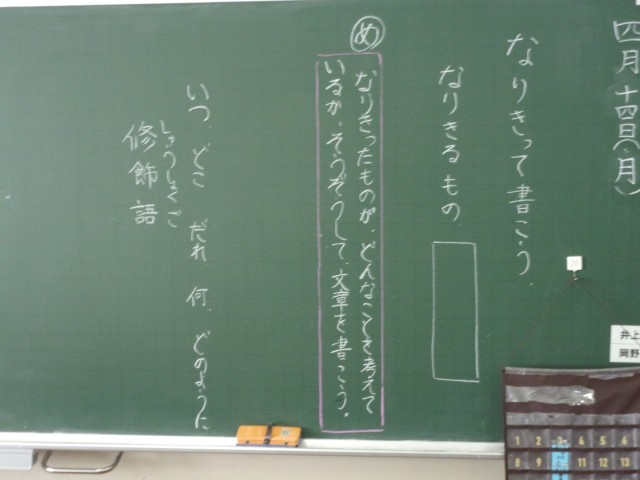 四月十四日(月)
なりきって書こう。
なりきるもの
め
なりきったものが、どんなことを考えて
いるか、そうぞうして、文章を書こう。
いつ、どこ だれ 何、どのように
しゅうしょくご
修飾語
井上
岡野
1 2 3 4 5 6
8 9 11 12 13